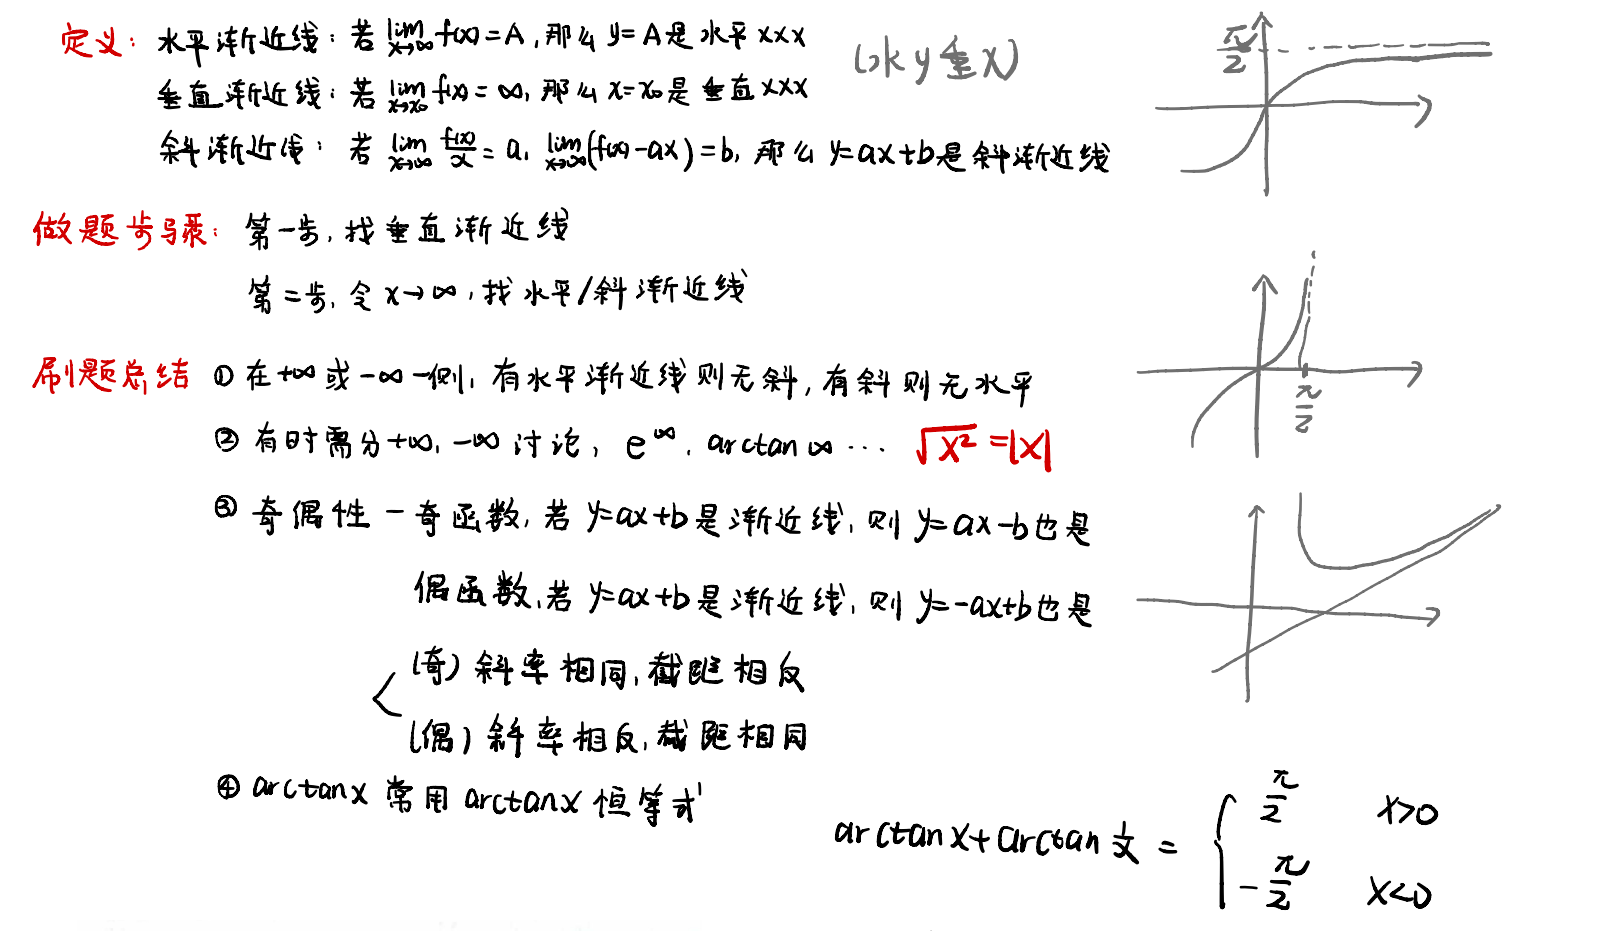 定义: 水平渐近线: 若 lim x→∞ f(x)=A, 那么 y=A是水平xxx
(水y垂x)
垂直渐近线: 若 lim x→x₀ f(x)=∞, 那么 x=x₀是垂直xxx
斜渐近线: 若 lim x→∞ f(x)/x=a, lim x→∞ (f(x)-ax)=b, 那么 y=ax+b是斜渐近线
π/2
做题步骤: 第一步, 找垂直渐近线
第二步, 令 x→∞, 找水平/斜渐近线
π/2
刷题总结 ① 在+∞或-∞一侧, 有水平渐近线则无斜, 有斜则无水平
② 有时需分+∞, -∞讨论, e^∞, arctan∞… √x²=|x|
③ 奇偶性-奇函数, 若 y=ax+b是渐近线, 则 y=ax-b也是
偶函数, 若 y=ax+b是渐近线, 则 y=-ax+b也是
(奇) 斜率相同, 截距相反
(偶) 斜率相反, 截距相同
④ arctanx 常用arctanx恒等式
arctanx+arctan 1/x = { π/2 x>0
-π/2 x<0